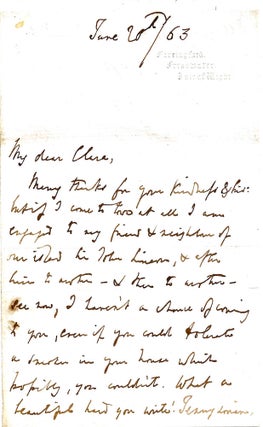 June 20th/63
Farringford.
Freshwater.
Isle of Wight.
My dear Clara,
Many thanks for your kindness & this:
but if I come to town at all I am
engaged to my friend & neighbour of
our island Sir John Simeon, & after
him to another - & then to another -
see now, I haven't a chance of coming
to you, even if you could tolerate
a smoker in your house which
hopefully, you couldn't. What a
beautiful hand you write!